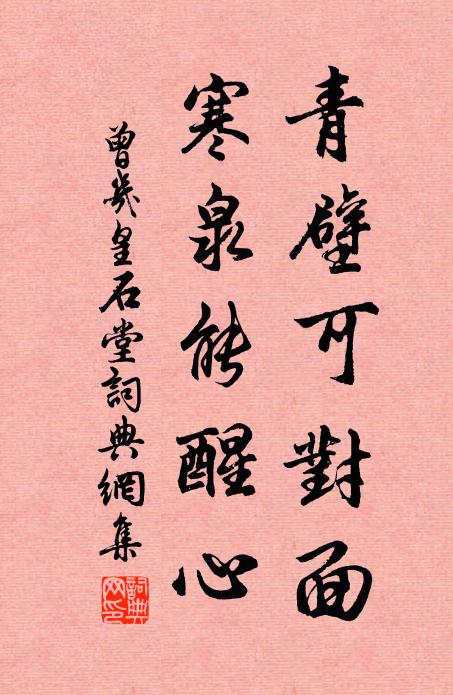 青壁可對面
寒泉能醒心
曾幾皇石堂詞典網集
詞典網印